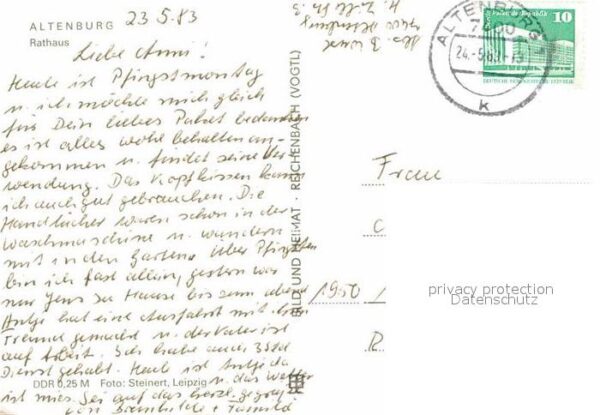 ALTENBURG
Rathaus
23.5.83
Liebe Anni!
Heute ist Pfingstmontag
u. ich möchte mich gleich
für Dein liebes Paket bedanken
es ist alles wohl behalten an-
gekommen u. findet seine Ver
wendung. Das Kopfkissen kann
ich auch gut gebrauchen. Die
Handtücher waren schon in der
Waschmaschine u. wandern
mit in den Garten. Über Pfingsten
bin ich fast allein, gestern war
nur Jens zu Hause bis zum abend
Antje hat eine Ausfahrt mit ihrem
Freund gemacht u. der Vater ist
auf Arbeit. Ich habe auch
Dienst gehabt. Heute ist Antje da
u. das Wetter
ist mies. Sei auf das herzl. gegrüßt
von u. Familie
DDR 0,25 M Foto: Steinert, Leipzig
BILD UND HEIMAT · REICHENBACH (VOGTL)
ALTENBURG
7400
24.-5.83.-13
k
10
DEUTSCHE DEMOKRATISCHE REPUBLIK
Frau
C
1950
R
privacy protection
Datenschutz